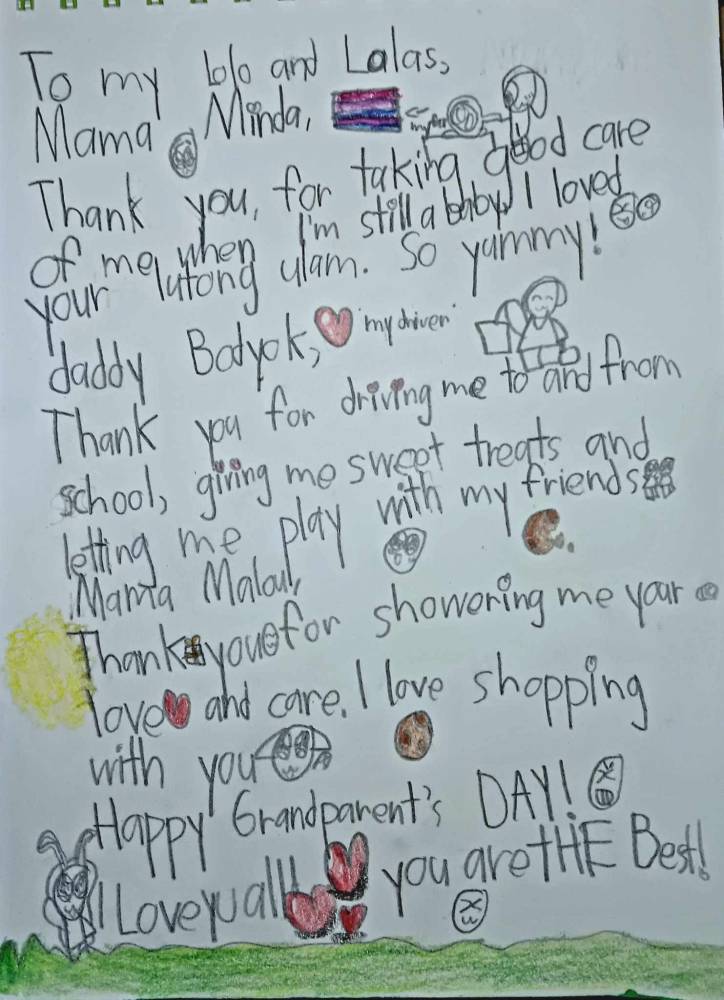 To my Lolo and Lalas,
Mama Minda,
Thank you, for taking good care
of me, when I'm still a baby, I loved
your lutong ulam. So yummy!
daddy Botyok, 'my driver'
Thank you for driving me to and from
school, giving me sweet treats and
letting me play with my friends
Mama Malou,
Thank you for showering me your
love and care. I love shopping
with you
Happy Grandparent's DAY!
I Love yu all!! you are tHE Best!